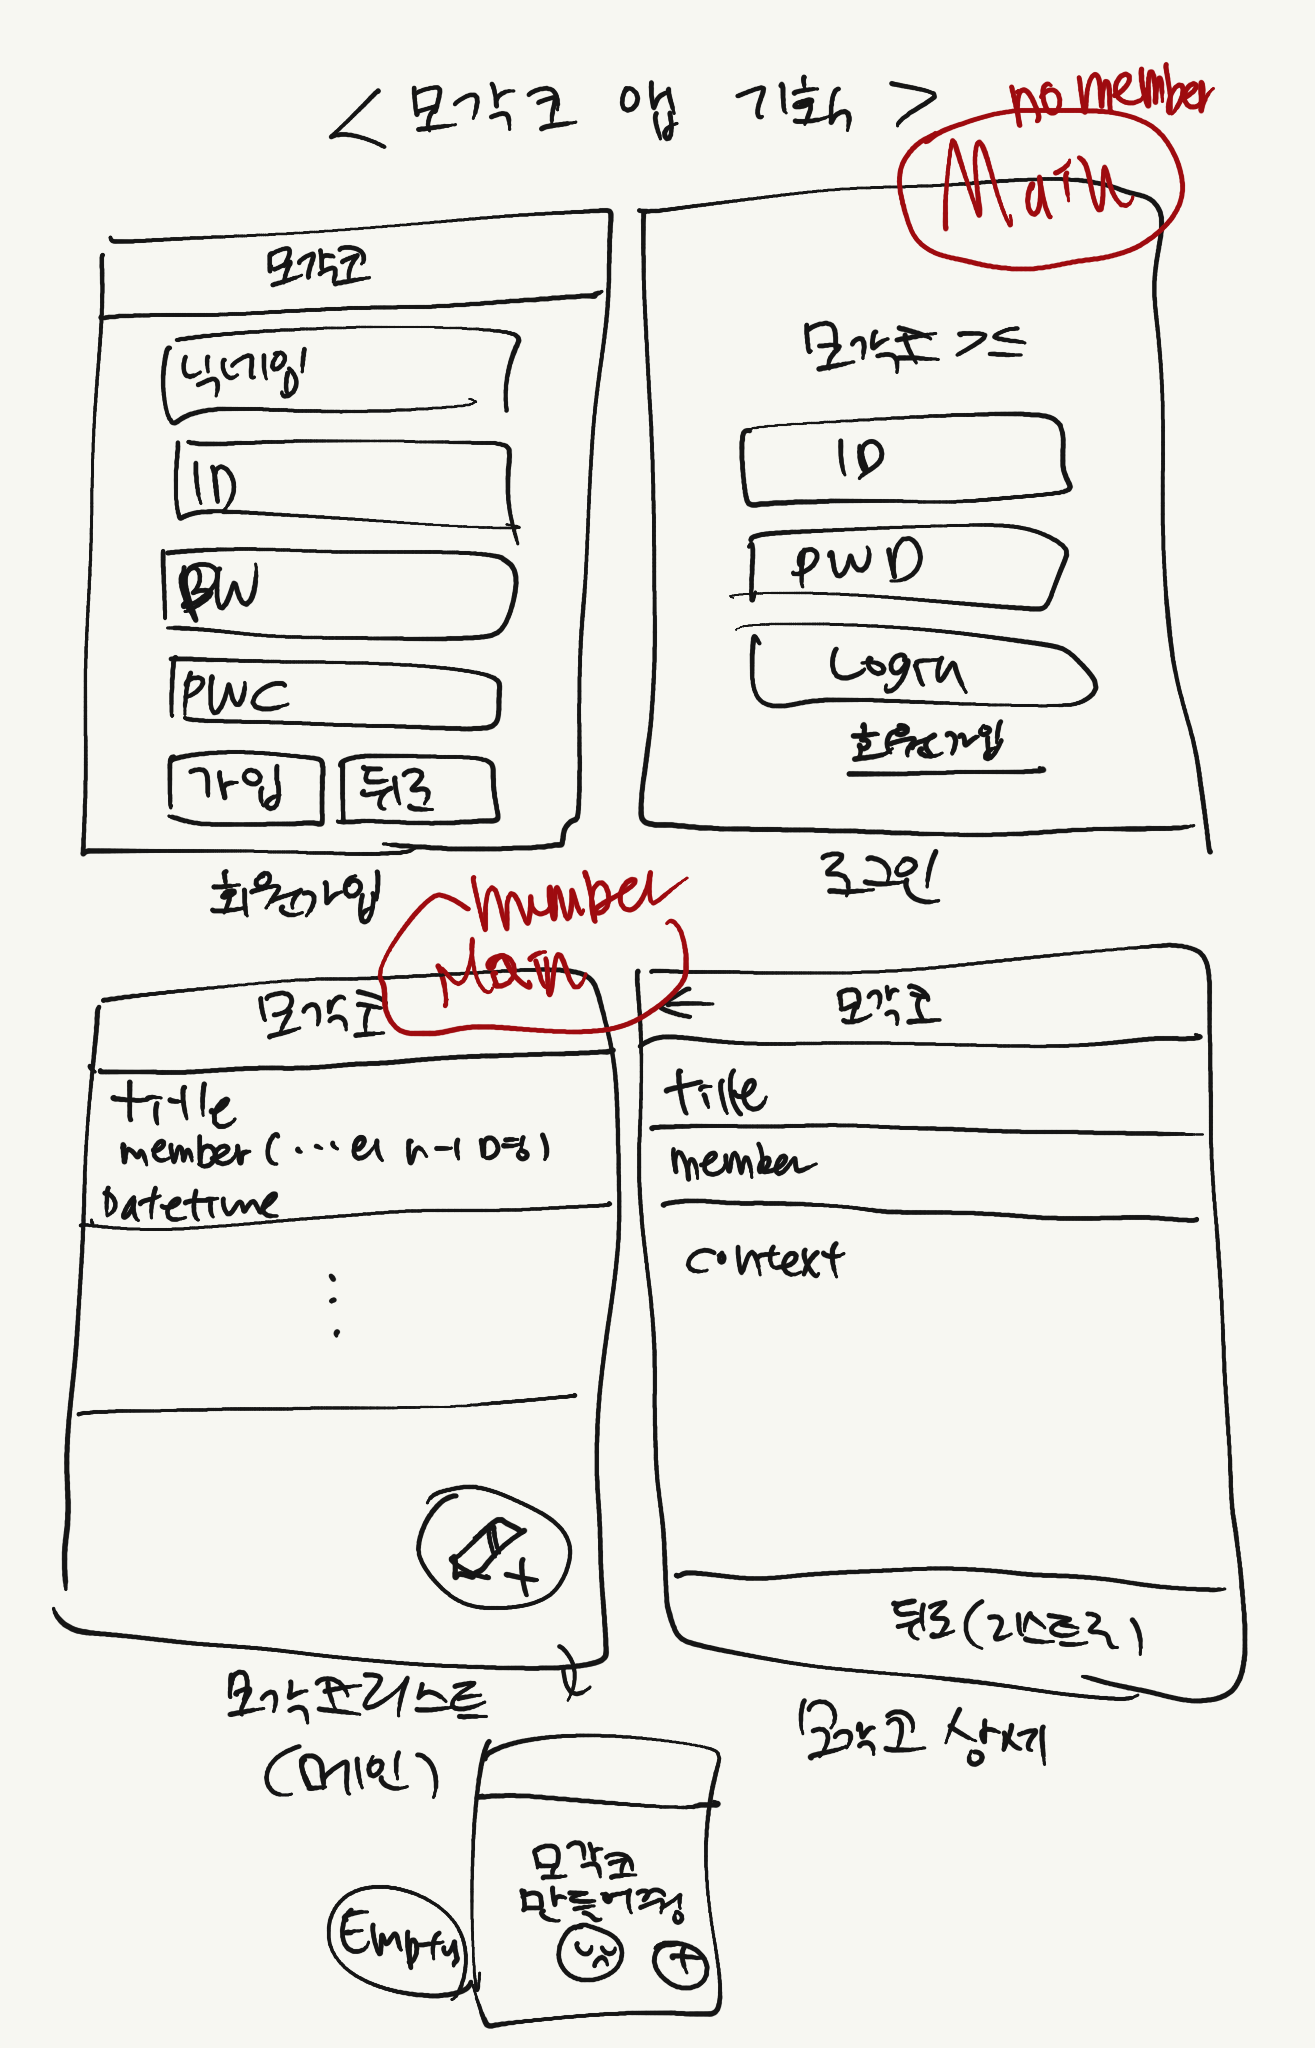 < 모각코 앱 기획 >
no member
Main
모각코
닉네임
ID
PW
PWC
가입
뒤로
회원가입
모각코 >≤
ID
PWD
Login
회원가입
로그인
member
Main
모각코
title
member (... 외 n-1 명)
Datetime
모각코리스트
(메인)
←
모각코
title
member
context
뒤로 (리스트로)
모각코 상세
Empty
모각코
만들어줭
+